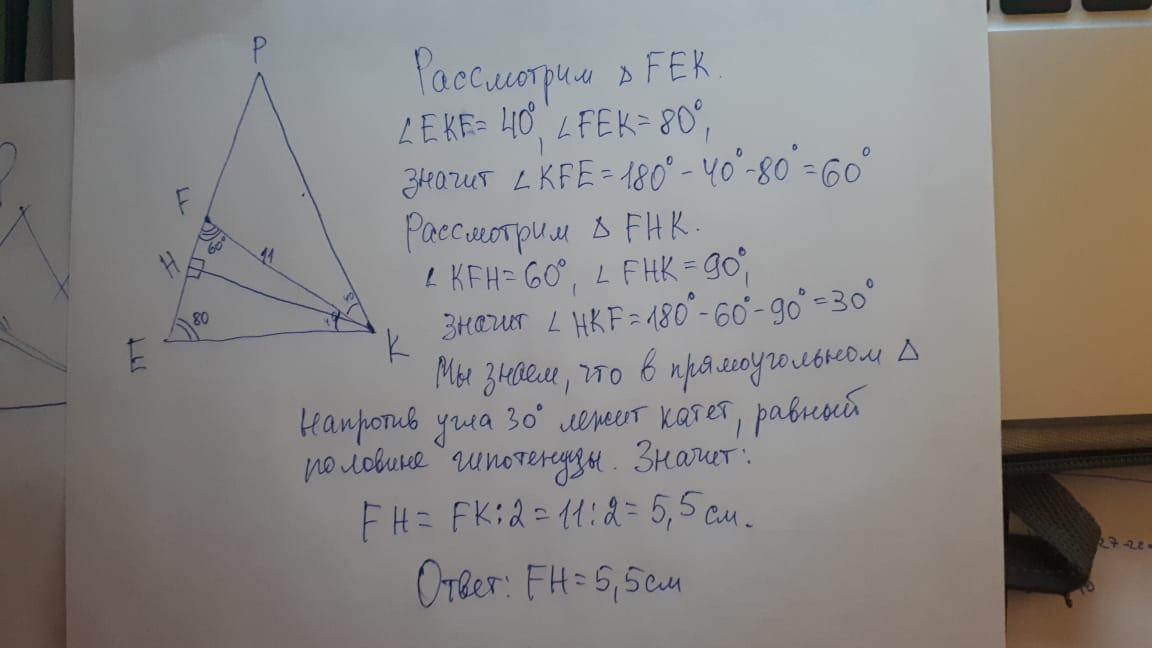 P
Рассмотрим △ FEK.
∠EKF = 40°, ∠FEK = 80°,
значит ∠KFE = 180° - 40° - 80° = 60°
F
Рассмотрим △ FHK.
60°
11
H
∠KFH = 60°, ∠FHK = 90°,
80
значит ∠HKF = 180° - 60° - 90° = 30°
E
K
Мы знаем, что в прямоугольном △
напротив угла 30° лежит катет, равный
половине гипотенузы. Значит:
FH = FK:2 = 11:2 = 5,5 см.
Ответ: FH = 5,5 см